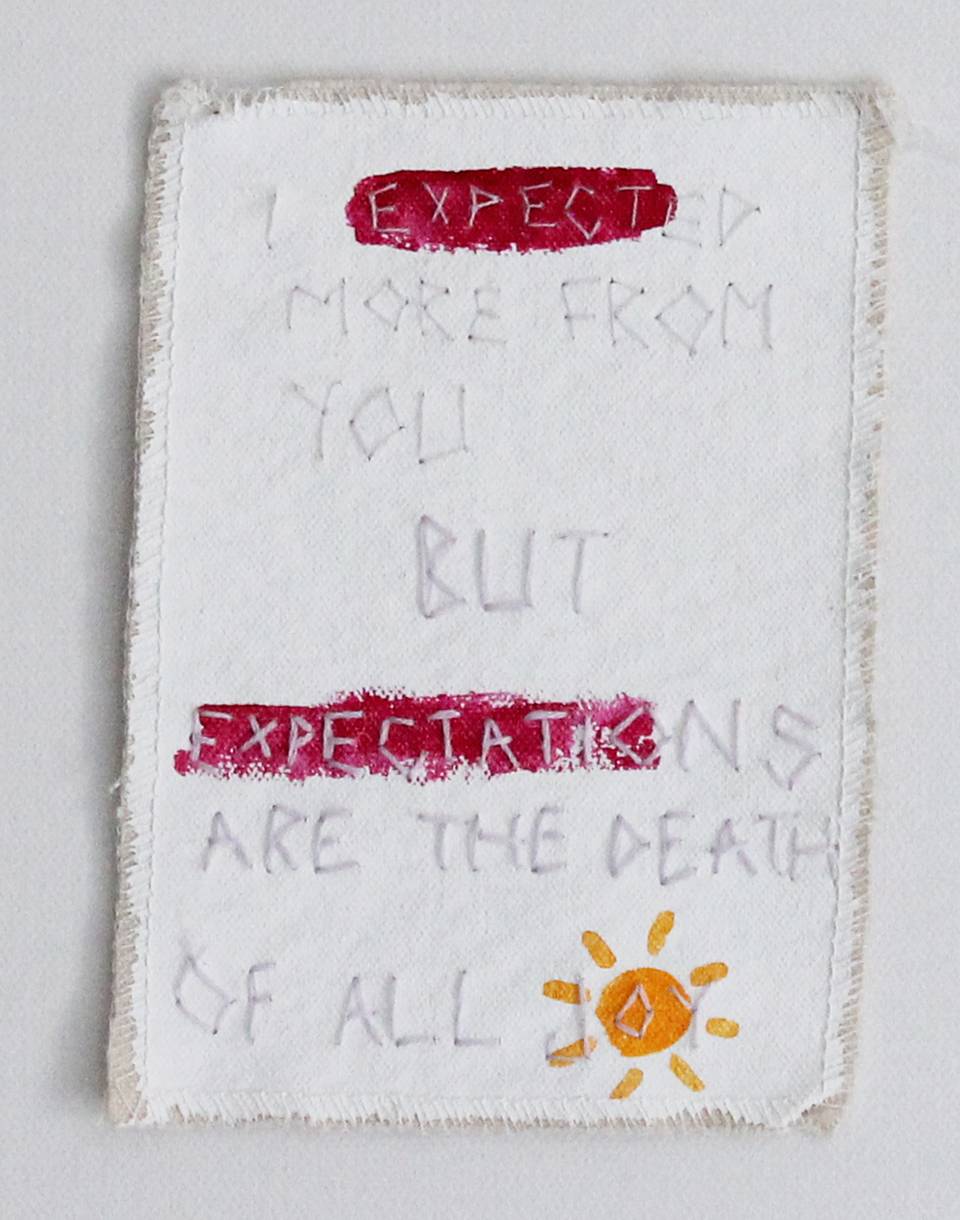 I EXPECTED
MORE FROM
YOU
BUT
EXPECTATIONS
ARE THE DEATH
OF ALL JOY